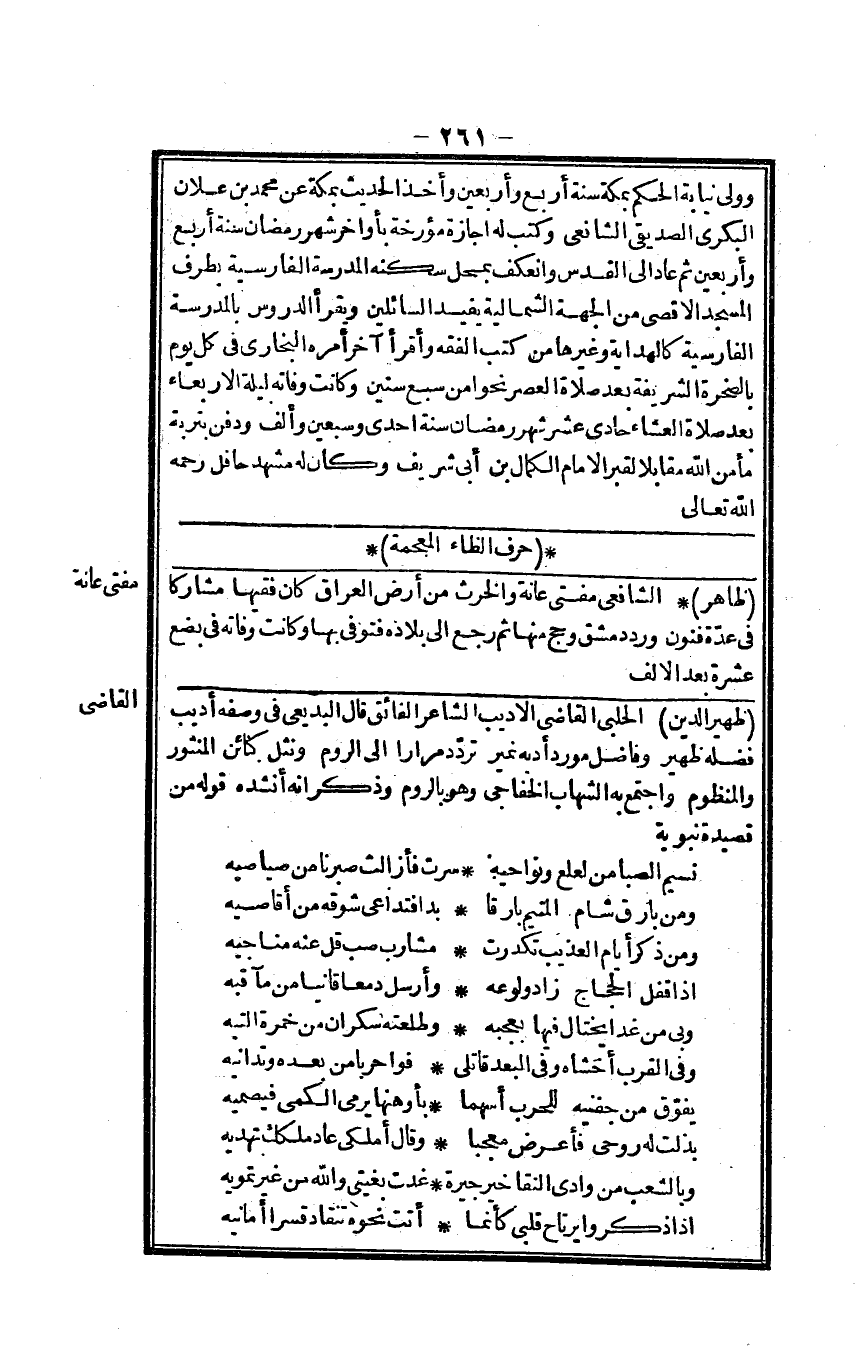 - ٢٦١ -
وولى نيابة الحكم بمكة سنة أربع وأربعين وأخذ الحديث بمكة عن محمد بن علان
البكرى الصديقى الشافعى وكتب له اجازة مؤرخة بأواخر شهر رمضان سنة أربع
وأربعين ثم عاد الى القدس وانعكف بمحل سكنه المدرسة الفارسية بطرف
المسجد الاقصى من الجهة الشمالية يفيد السائلين ويقرأ الدروس بالمدرسة
الفارسية كالهداية وغيرها من كتب الفقه وأقرأ آخر أمره البخارى فى كل يوم
بالصخرة الشريفة بعد صلاة العصر نحوا من سبع سنين وكانت وفاته ليلة الاربعاء
بعد صلاة العشاء حادى عشر شهر رمضان سنة احدى وسبعين وألف ودفن بتربة
مأمن الله مقابلا لقبر الامام الكمال بن أبى شريف وكان له مشهد حافل رحمه
الله تعالى
*(حرف الظاء المعجمة)*
مفتى عانة
(ظاهر)* الشافعى مفتى عانة والخرث من أرض العراق كان فقيها مشاركا
فى عدّة فنون ورد دمشق وحج منها ثم رجع الى بلاده فتوفى بها وكانت وفاته فى بضع
عشرة بعد الالف
القاضى
(ظهير الدين) الحلبى القاضى الاديب الشاعر الفائق قال البديعى فى وصفه أديب
فضله ظهير وفاضل مورد أدبه نمير تردّد مرارا الى الروم ونثل كنائن المنثور
والمنظوم واجتمع به الشهاب الخفاجى وهو بالروم وذكر انه أنشده قوله من
قصيدة نبوية
نسيم الصبا من لعلع ونواحيه * سرت فأزالت صبرنا من صياصيه
ومن بارق شام المتيم بارقا * بدا فتداعى شوقه من أقاصيه
ومن ذكر أيام العذيب تكدرت * مشارب صب قل عنه مناجيه
اذا قفل الحجاج زاد ولوعه * وأرسل دمعا قانيا من مآقيه
وبى من غدا يختال فيها بعجبه * وطلعته سكران من خمرة التيه
وفى القرب أخشاه وفى البعد قاتلى * فواحربا من بعده وتدانيه
يفوّق من جفنيه للحرب أسهما * بأوهنها يرمى الكمى فيصميه
بذلت له روحى فأعرض معجبا * وقال أملكى عاد ملكك تهديه
وبالشعب من وادى النقا خير جيرة * غدت بغيتى والله من غير تمويه
اذا ذكروا يرتاح قلبى كأنما * أتت نحوه تنقاد قسرا أمانيه